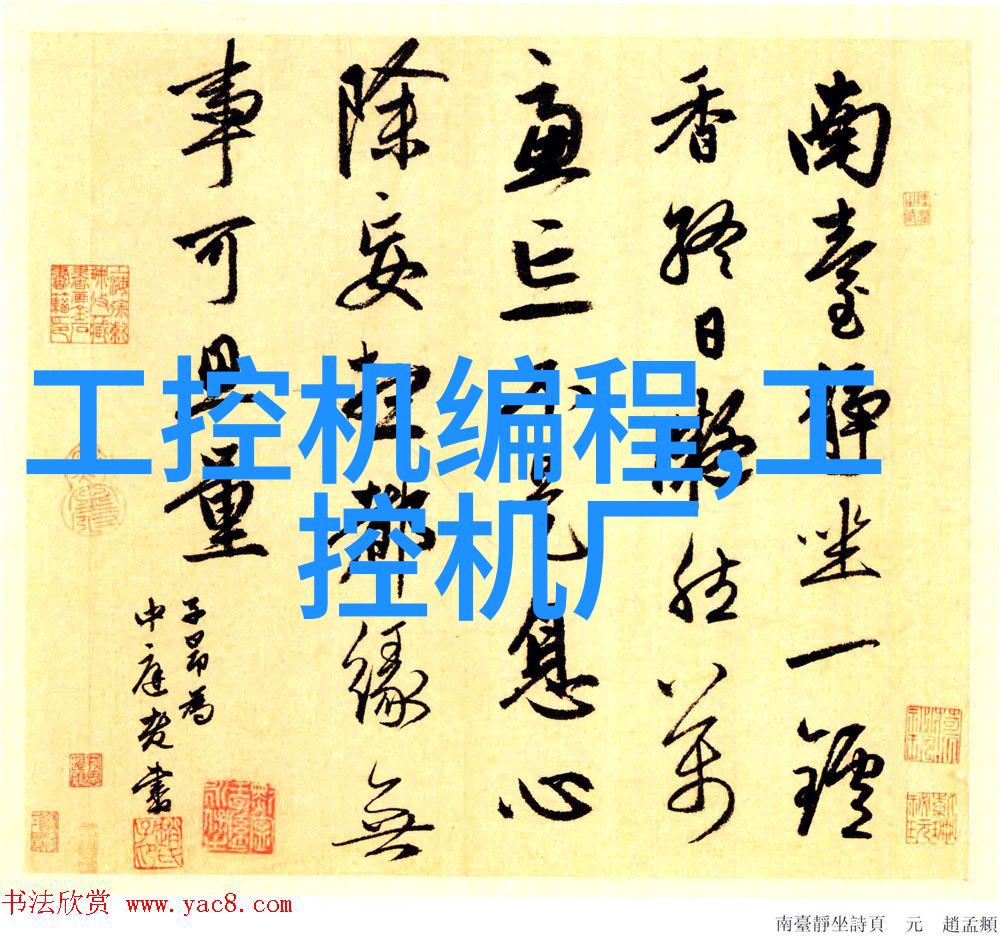 南臺靜坐一鑪
香終日凝然萬
慮亡不是息心
除妄想都緣無
事可思量
子昂為
中庭老書
工控机编程,工
控机厂
书法欣赏 www.yac8.com
南臺靜坐詩頁 元 趙孟頫